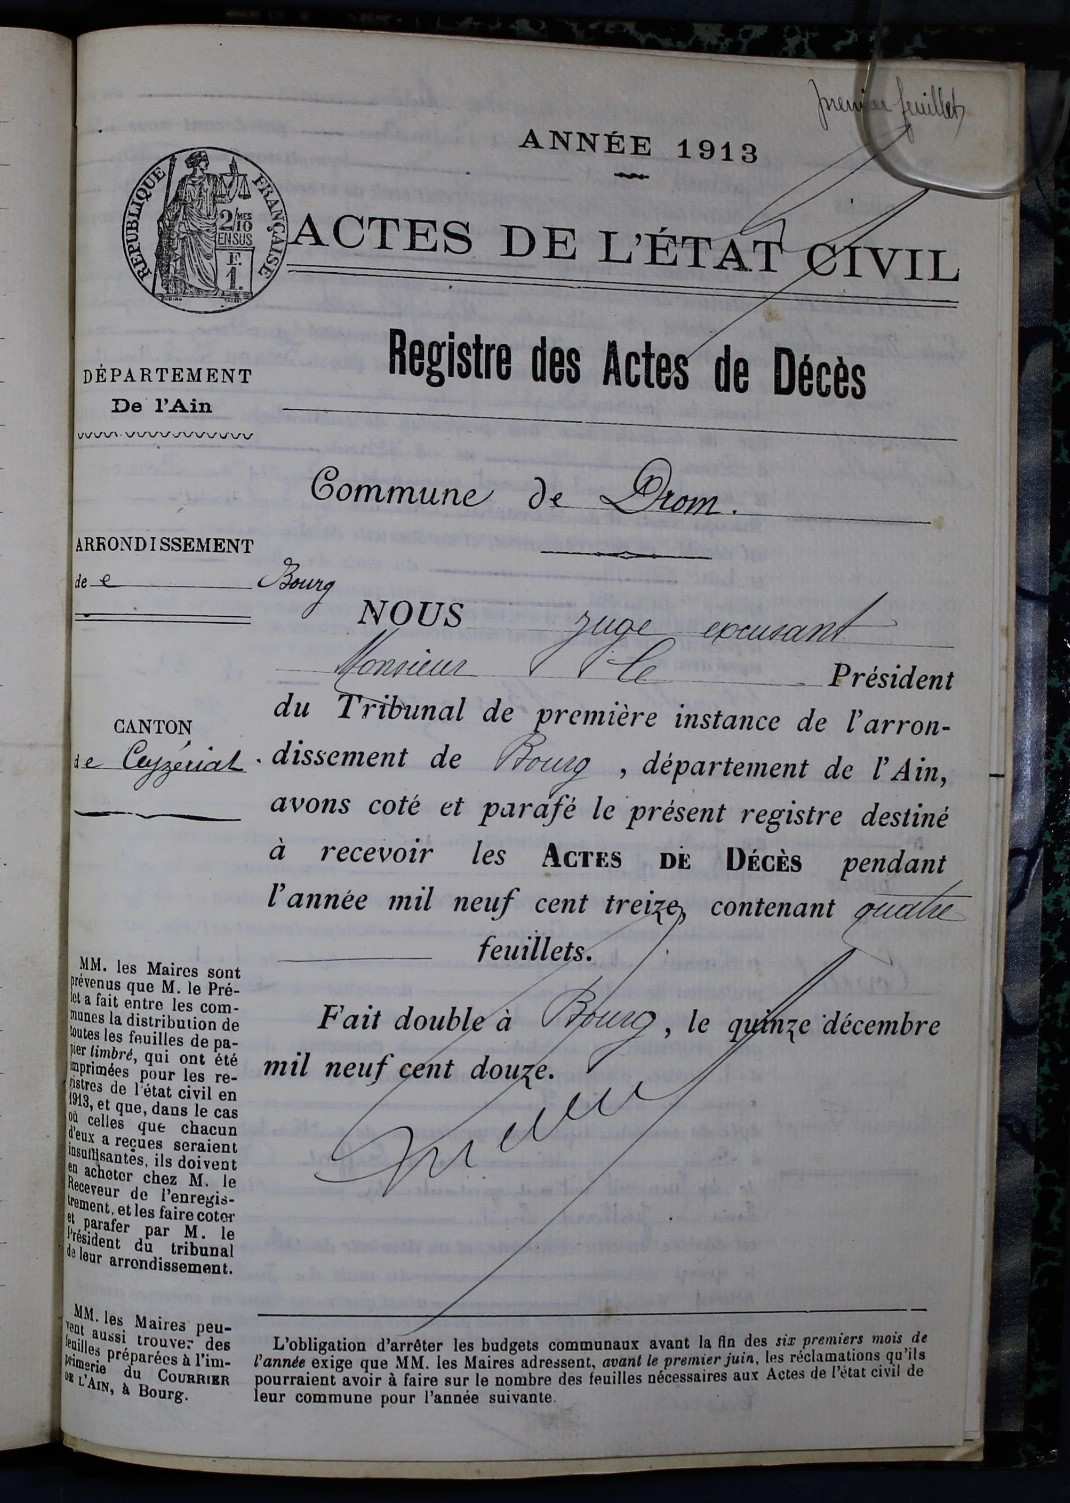 premier feuillet
ANNÉE 1913
RÉPUBLIQUE FRANÇAISE
2/MES
10
EN SUS
F.
1.
ACTES DE L'ÉTAT CIVIL
Registre des Actes de Décès
DÉPARTEMENT
De l'Ain
Commune de Drom.
ARRONDISSEMENT
de Bourg
NOUS juge excusant
Monsieur le Président
du Tribunal de première instance de l'arron-
dissement de Bourg, département de l'Ain,
avons coté et parafé le présent registre destiné
à recevoir les ACTES DE DÉCÈS pendant
l'année mil neuf cent treize, contenant quatre
feuillets.
Fait double à Bourg, le quinze décembre
mil neuf cent douze.
CANTON
de Ceyzériat.
MM. les Maires sont
prévenus que M. le Pré-
fet a fait entre les com-
munes la distribution de
toutes les feuilles de pa-
pier timbré, qui ont été
imprimées pour les re-
gistres de l'état civil en
1913, et que, dans le cas
où celles que chacun
d'eux a reçues seraient
insuffisantes, ils doivent
en acheter chez M. le
Receveur de l'enregis-
trement, et les faire coter
et parafer par M. le
Président du tribunal
de leur arrondissement.
MM. les Maires peu-
vent aussi trouver des
feuilles préparées à l'im-
primerie du COURRIER
DE L'AIN, à Bourg.
L'obligation d'arrêter les budgets communaux avant la fin des six premiers mois de
l'année exige que MM. les Maires adressent, avant le premier juin, les réclamations qu'ils
pourraient avoir à faire sur le nombre des feuilles nécessaires aux Actes de l'état civil de
leur commune pour l'année suivante.